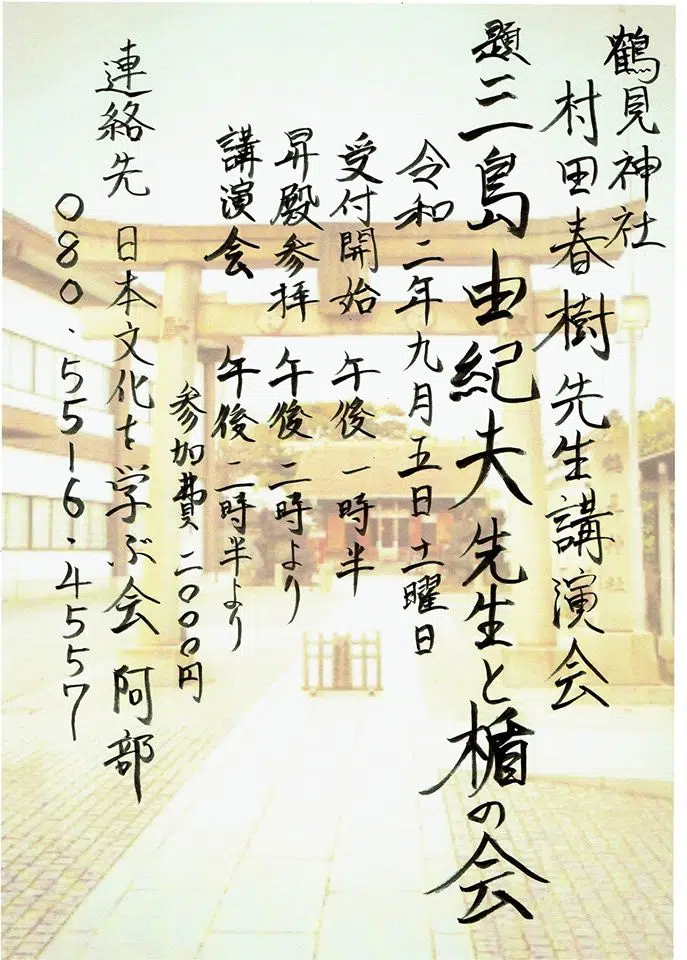 鶴見神社
村田春樹先生講演会
題 三島由紀夫先生と楯の会
令和二年九月五日土曜日
受付開始 午後一時半
昇殿参拝 午後二時より
講演会 午後二時半より
参加費二〇〇〇円
連絡先 日本文化を学ぶ会 阿部
080.5516.4557